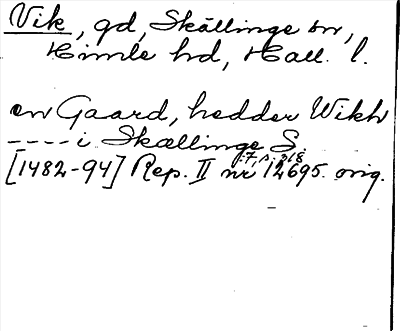 Vik, gd, Skällinge sn,
Himle hd, Hall. l.
en Gaard, hedder Wikh
---- i Skællinge S.
[1482-94] Rep. II nr 12695. orig.